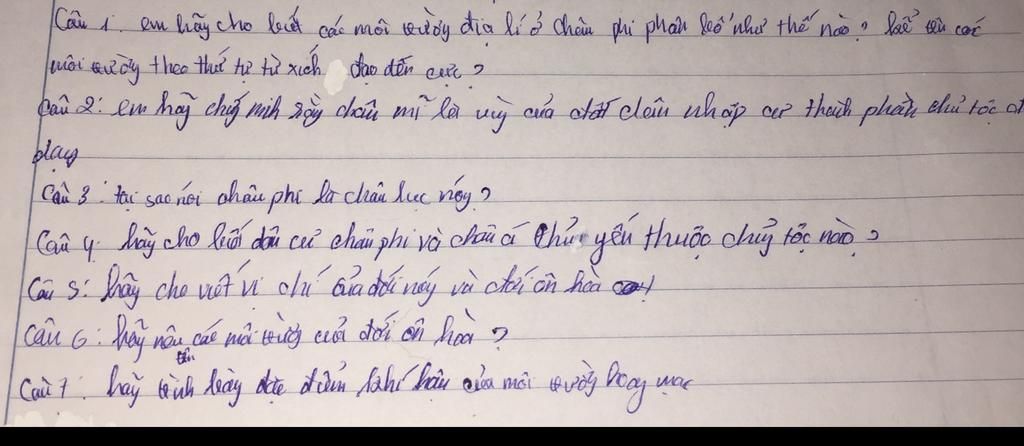 Câu 1: em hãy cho biết các môi trường địa lí ở châu phi phân bố như thế nào? kể tên các
môi trường theo thứ tự từ xích đạo đến cực?
Câu 2: em hãy chứng minh rằng châu mĩ là vùng của đất dân nhập cư thành phần chủ tộc đa
dạng
Câu 3: tại sao nói châu phi là châu lục nóng?
Câu 4. hãy cho biết dân cư châu phi và châu á chủ yếu thuộc chủng tộc nào?
Câu 5: hãy cho viết vi chí của đới nóng và đới ôn hòa
Câu 6: hãy nêu tên các môi trường của đới ôn hòa?
Câu 7: hãy trình bày đặc điểm khí hậu của môi trường hoang mạc